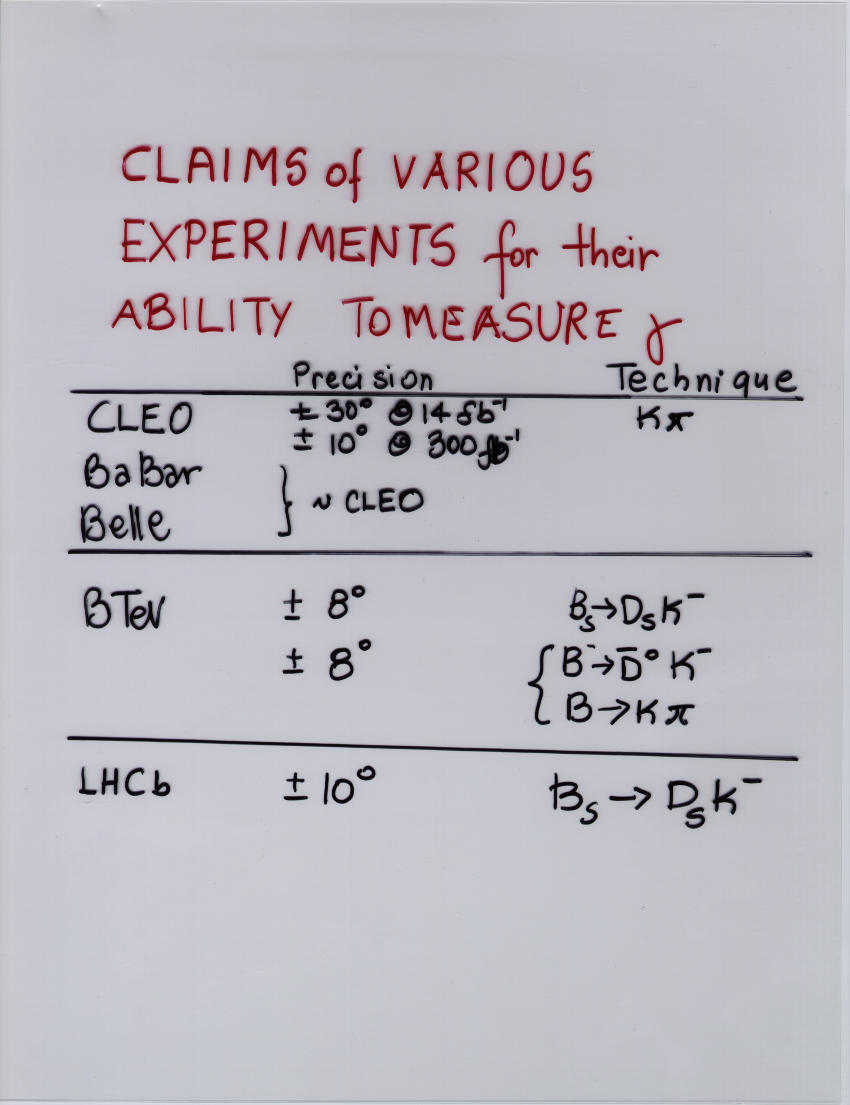 CLAIMS of VARIOUS
EXPERIMENTS for their
ABILITY TO MEASURE γ
Precision Technique
CLEO ± 30° @ 14 fb⁻¹ Kπ
± 10° @ 300 fb⁻¹
BaBar
Belle } ~ CLEO
BTeV ± 8° Bₛ→DₛK⁻
± 8° { B⁻→D̄° K⁻
B→Kπ
LHCb ± 10° Bₛ → DₛK⁻